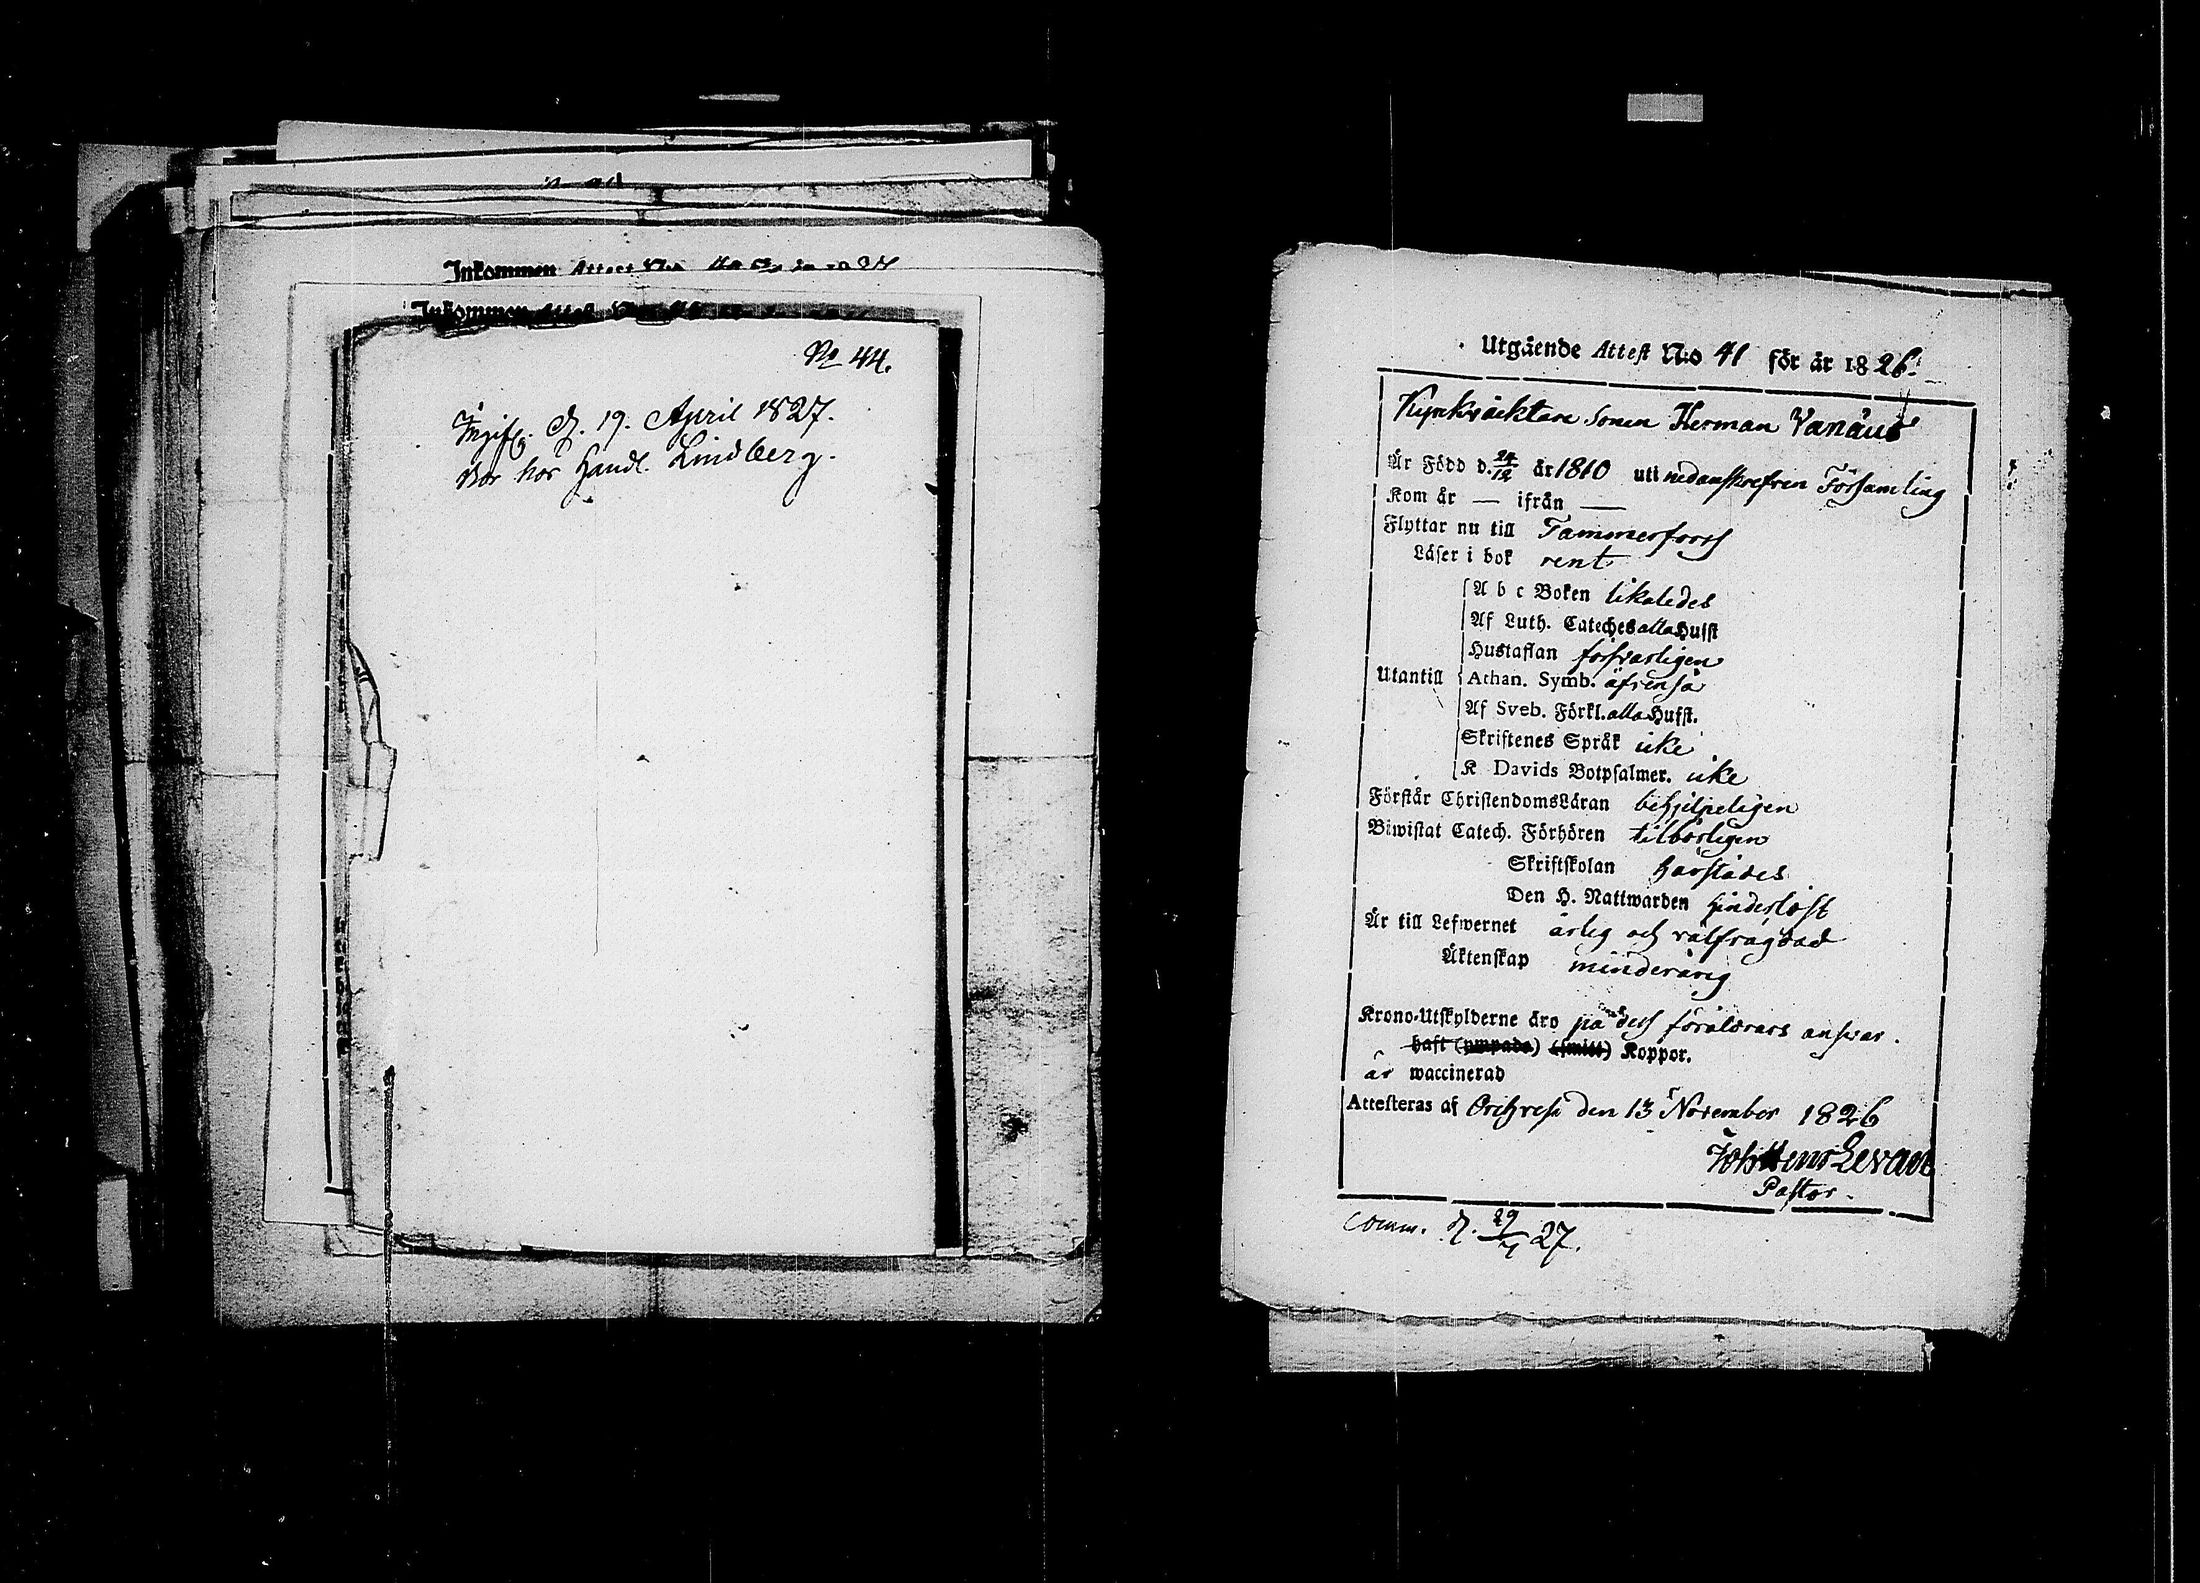 Inkommen Attest N:o
Inkommen Attest
No 44.
Ingifv. d. 19. April 1827.
Bor hos Handl. Lindberg.
Utgående Attest N:o 41 för år 1826.
Kyrkväktare Sonen Herman Vanäus
Är Född d. 24/12 år 1810 uti nedanskrefven Församling
Kom år — ifrån —
Flyttar nu till Tammerforss
Läser i bok rent
A b c Boken likaledes
Af Luth. Cateches alla Hufst
Hustaflan försvarligen
Utantill Athan. Symb. äfvenså
Af Sveb. Förkl. alla Hufst.
Skriftenes Språk icke
K Davids Botpsalmer. icke
Förstår ChristendomsLäran behjelpeligen
Biwistat Catech. Förhören tilbörligen
Skriftskolan härstädes
Den H. Nattwarden hinderlöst
Är till Lefwernet ärlig och välfrägdad
Äktenskap minderårig
Krono-Utskylderne äro på dess föräldrars ansvar.
haft (ympade) (smitt) Koppor.
är waccinerad
Attesteras af Orihvesi den 13 November 1826
Joh Henr Levan
Pastor.
Comm. d. 29/4 27.